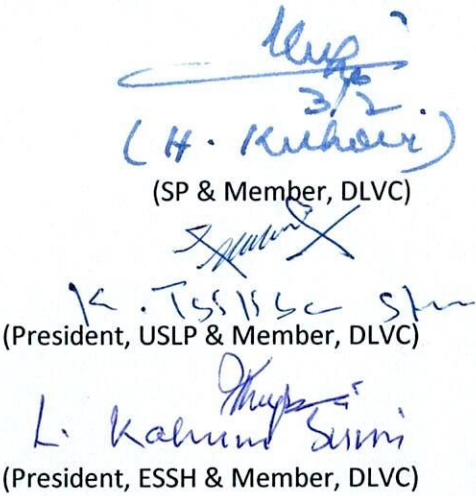 3/2
(H. Kuhovi)
(SP & Member, DLVC)
K.
(President, USLP & Member, DLVC)
L. Kahumi Sumi
(President, ESSH & Member, DLVC)